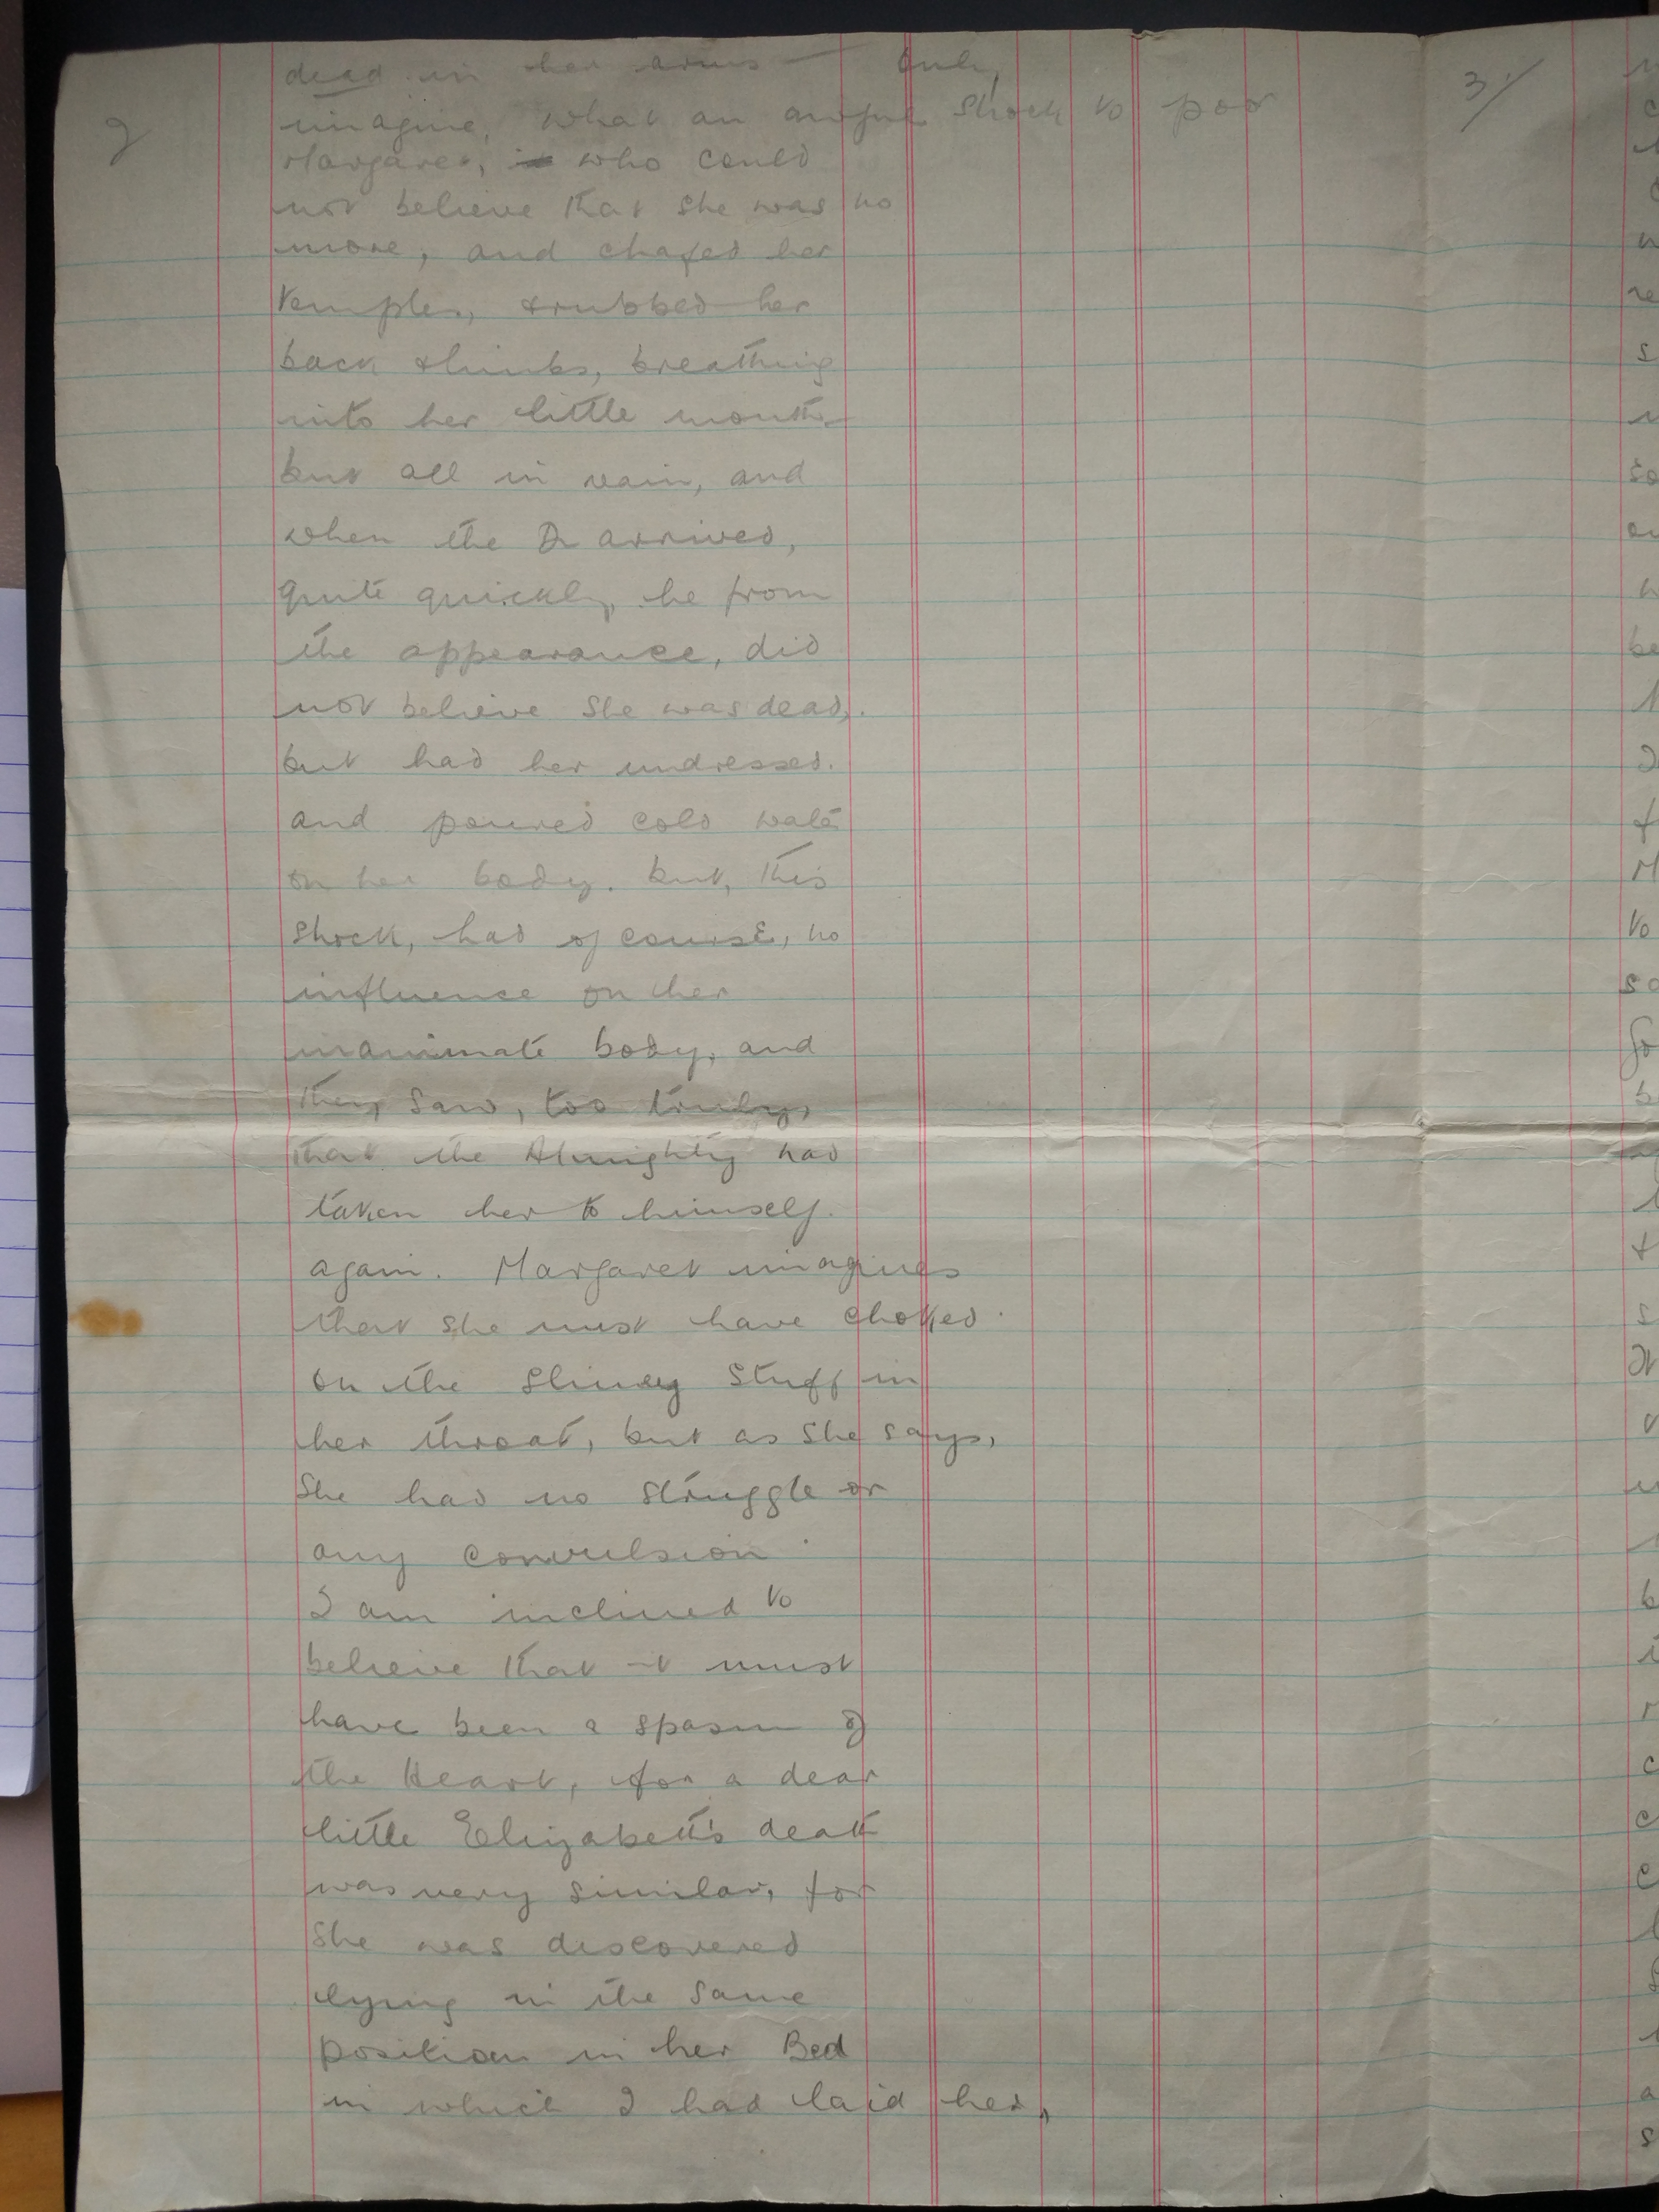 2
dead in her arms — Only
imagine, what an awful shock to poor
Margaret, who could
not believe that she was no
more, and chafed her
temples, & rubbed her
back & limbs, breathing
into her little mouth -
but all in vain, and
when the Dr arrived,
quite quickly, he from
the appearance, did
not believe she was dead,
but had her undressed.
and poured cold water
on her body. but, this
shock, had of course, no
influence on her
inanimate body, and
they saw, too truly,
that the Almighty had
taken her to himself.
again. Margaret imagines
that she must have choked
on the slimey stuff in
her throat, but as she says,
She had no struggle or
any convulsion.
I am inclined to
believe that it must
have been a spasm of
the Heart, for a dear
little Elizabeth's death
was very similar, for
She was discovered
lying in the same
position in her Bed
in which I had laid her,
3/